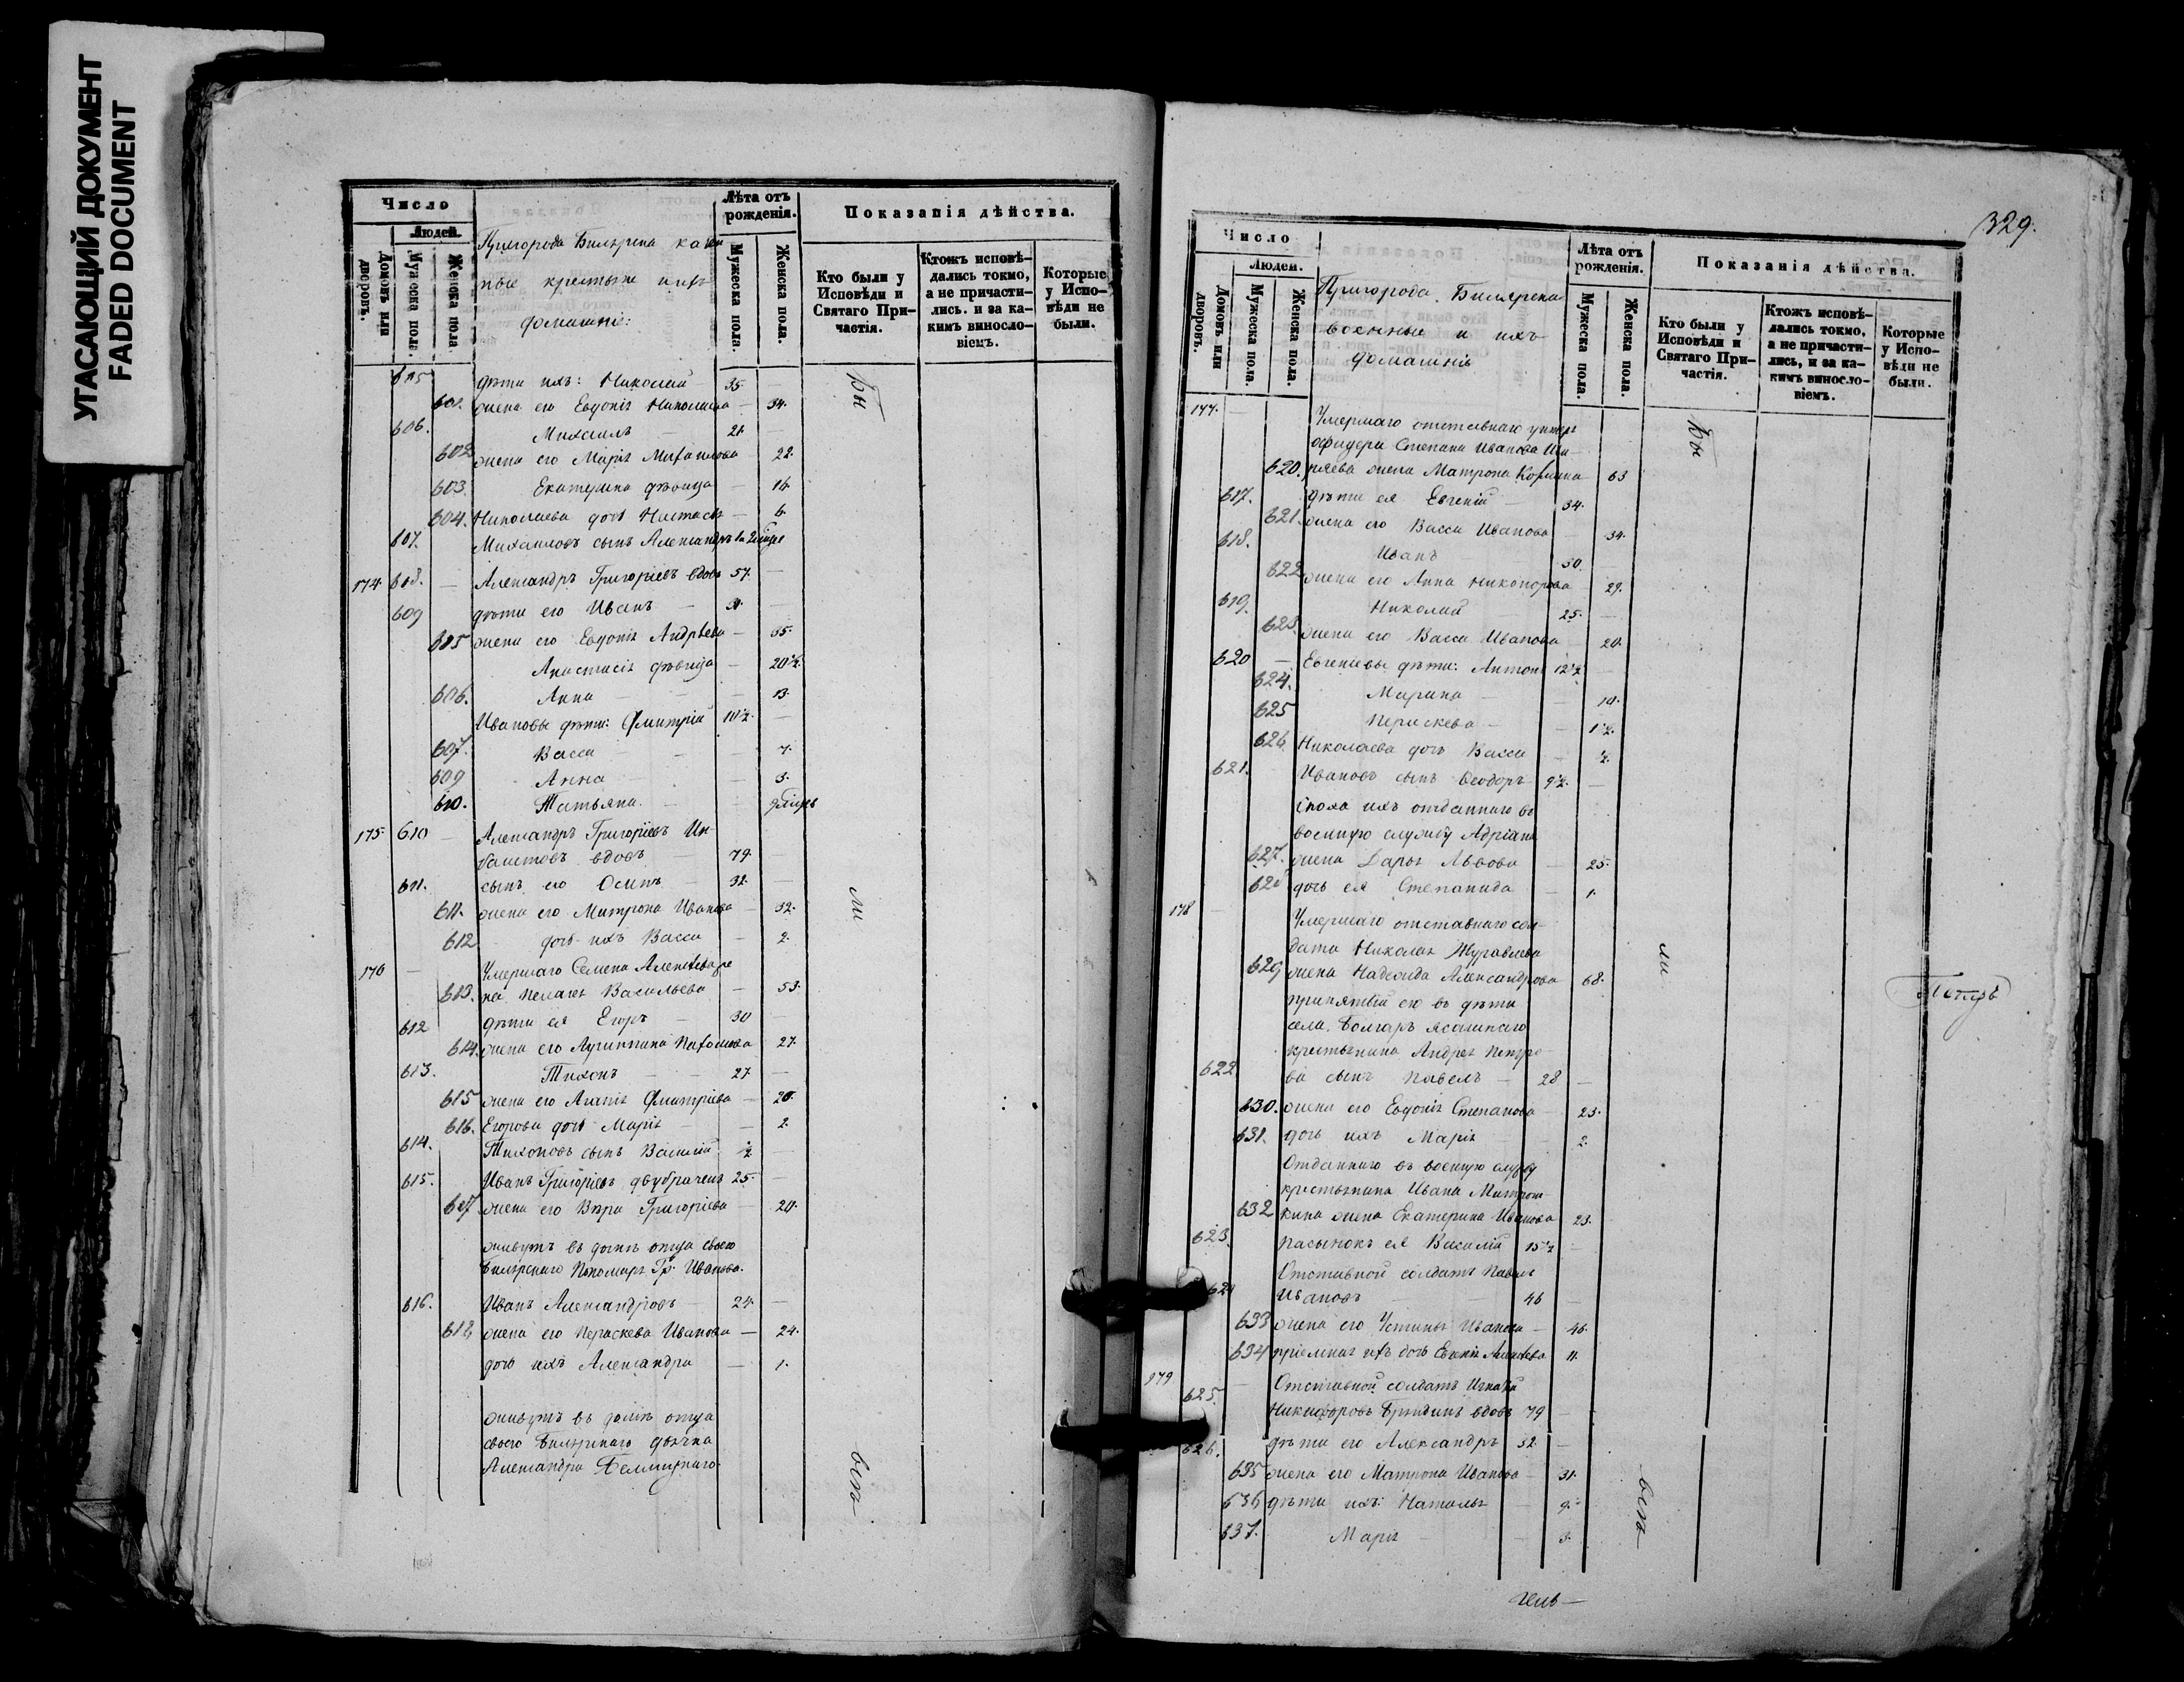 УГАСАЮЩИЙ ДОКУМЕНТ
FADED DOCUMENT
Число
Людей.
Домовъ или дворовъ.
Мужеска пола.
Женска пола.
Пригорода Билярска казен
ные крестьяне и ихъ
домашніе:
Лѣта отъ рожденія.
Мужеска пола.
Женска пола.
Показанія дѣйства.
Кто были у Исповѣди и Святаго Причастія.
Ктожъ исповѣдались токмо, а не причастились. и за какимъ винословіемъ.
Которые у Исповѣди не были.
605 дѣти ихъ: Николай 35.
601. жена его Евдокія Николаева 34.
606. Михаилъ 21.
602 жена его Марія Михаилова 22.
603. Екатерина дѣвица 16
604. Николаева дочь Настасья 6.
607. Михаиловъ сынъ Александръ
174. 608. Александръ Григорьевъ вдовъ 57.
609 дѣти его Иванъ 31.
605 жена его Евдокія Андреева 35.
Анастасія дѣвица 20½.
606. Анна 13.
Ивановы дѣти: Дмитрій 10½.
607. Васса 7.
609 Анна 3.
610. Татьяна.
175. 610 Александръ Григорьевъ
вдовъ 79.
611. сынъ его Осипъ 32.
611. жена его Матрона Иванова 32.
612 дочь ихъ Васса 2.
176 Умершаго Семена Алексѣева
613. Пелагея Васильева 53.
612 дѣти ея Егоръ 30
614. жена его 27.
613. Тихонъ 27
615 жена его Агапія Дмитріева 20.
616. Егорова дочь Марія 2
614. Тихоновъ сынъ Василій ½
615. Иванъ Григорьевъ двубраченъ 25.
617 жена его Вѣра Григорьева 20.
живутъ въ домѣ отца своего
Билярскаго Пономаря Гр. Иванова.
616. Иванъ Александровъ 24.
618 жена его Параскева Иванова 24.
дочь ихъ Александра 1.
живутъ въ домѣ отца
своего Билярскаго дьячка
Александра
Бы
ли
всѣ
329.
Число
Людей.
Домовъ или дворовъ.
Мужеска пола.
Женска пола.
Пригорода Билярска
военные и ихъ
домашніе
Лѣта отъ рожденія.
Мужеска пола.
Женска пола.
Показанія дѣйства.
Кто были у Исповѣди и Святаго Причастія.
Ктожъ исповѣдались токмо, а не причастились, и за какимъ винословіемъ.
Которые у Исповѣди не были.
177. Умершаго отставнаго унтеръ
офицера Степана Иванова
620. жена Матрона 63
617. дѣти ея Евгеній 34.
621. жена его Васса Иванова 34.
618. Иванъ 30.
622 жена его Анна Никонорова 29.
619. Николай 25.
623 жена его Васса Иванова 20.
620 Евгеніевы дѣти: Антонъ 12½
624. Марина 10.
625 Параскева 1½.
626 Николаева дочь Васса ½.
621. Ивановъ сынъ Ѳеодоръ 9½.
сноха ихъ отданнаго въ
военную службу Адріана
627. жена Дарья Львова 25.
628 дочь ея Степанида 1.
178 Умершаго отставнаго сол
дата Николая Журавлева
629 жена Надежда Александрова 68.
принятый ею въ дѣти
села Болгаръ ясашнаго
крестьянина Андрея Петро
622 ва сынъ Павелъ 28
630. жена его Евдокія Степанова 23.
631. дочь ихъ Марія 2.
Отданнаго въ военную службу
крестьянина Ивана Митрош
632 кина жена Екатерина Иванова 23.
623. пасынокъ ея Василій 15½
Отставной солдатъ Павелъ
624 Ивановъ 46
633 жена его Устинья Иванова 46.
634 пріемная ихъ дочь Алексѣева 11.
179 625. Отставной солдатъ Игнатій
Никифоровъ вдовъ 79
626. дѣти его Александръ 32.
635 жена его Матрона Иванова 31.
636 дѣти ихъ: Наталья 9.
637. Марія 3.
Бы
ли
всѣ